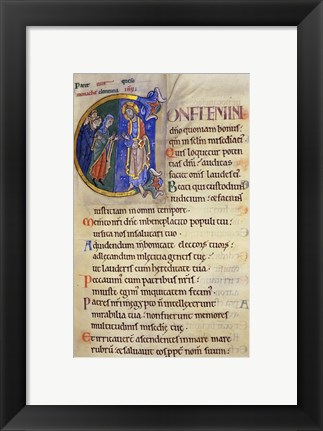 ONFITEMINI
dño quoniam bonus:
qm̄ in sclm̄ misedia ei'
Quis loquetur poten
tias dñi: auditas
faciet om̄s laudes ei'
Beati qui custodiunt
iudicium: & faciunt
iusticiam in omni tempore.
Memento nr̄i dñe in beneplacito populi tui:
uisita nos in salutari tuo.
Ad uidendum in bonitate electoꝝ tuoꝝ:
ad letandum in leticia gentis tue
ut lauderis cum hereditate tua.
Peccauim' cum patribus nr̄is:
iniuste egim' iniquitatem fecim'.
Patres nr̄i in egypto n̄ intellexerunt
mirabilia tua: non fuerunt memores
multitudinis miscđie tue.
Et irritauer̄ ascendentes in mare mare
rubrū & saluauit eos ꝓpt̄ nom̄ suum: